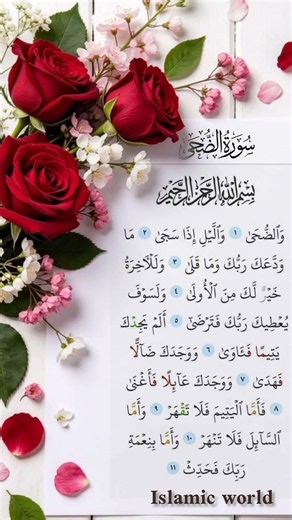 سُورَةُ الضُّحَىٰ
بِسْمِ اللَّهِ الرَّحْمَٰنِ الرَّحِيمِ
وَٱلضُّحَىٰ ١ وَٱلَّيْلِ إِذَا سَجَىٰ ٢ مَا
وَدَّعَكَ رَبُّكَ وَمَا قَلَىٰ ٣ وَلَلْأٓخِرَةُ
خَيْرٌ لَّكَ مِنَ ٱلْأُولَىٰ ٤ وَلَسَوْفَ
يُعْطِيكَ رَبُّكَ فَتَرْضَىٰٓ ٥ أَلَمْ يَجِدْكَ
يَتِيمًا فَـَٔاوَىٰ ٦ وَوَجَدَكَ ضَآلًّا
فَهَدَىٰ ٧ وَوَجَدَكَ عَآئِلًا فَأَغْنَىٰ
٨ فَأَمَّا ٱلْيَتِيمَ فَلَا تَقْهَرْ ٩ وَأَمَّا
ٱلسَّآئِلَ فَلَا تَنْهَرْ ١٠ وَأَمَّا بِنِعْمَةِ
رَبِّكَ فَحَدِّثْ ١١
Islamic world